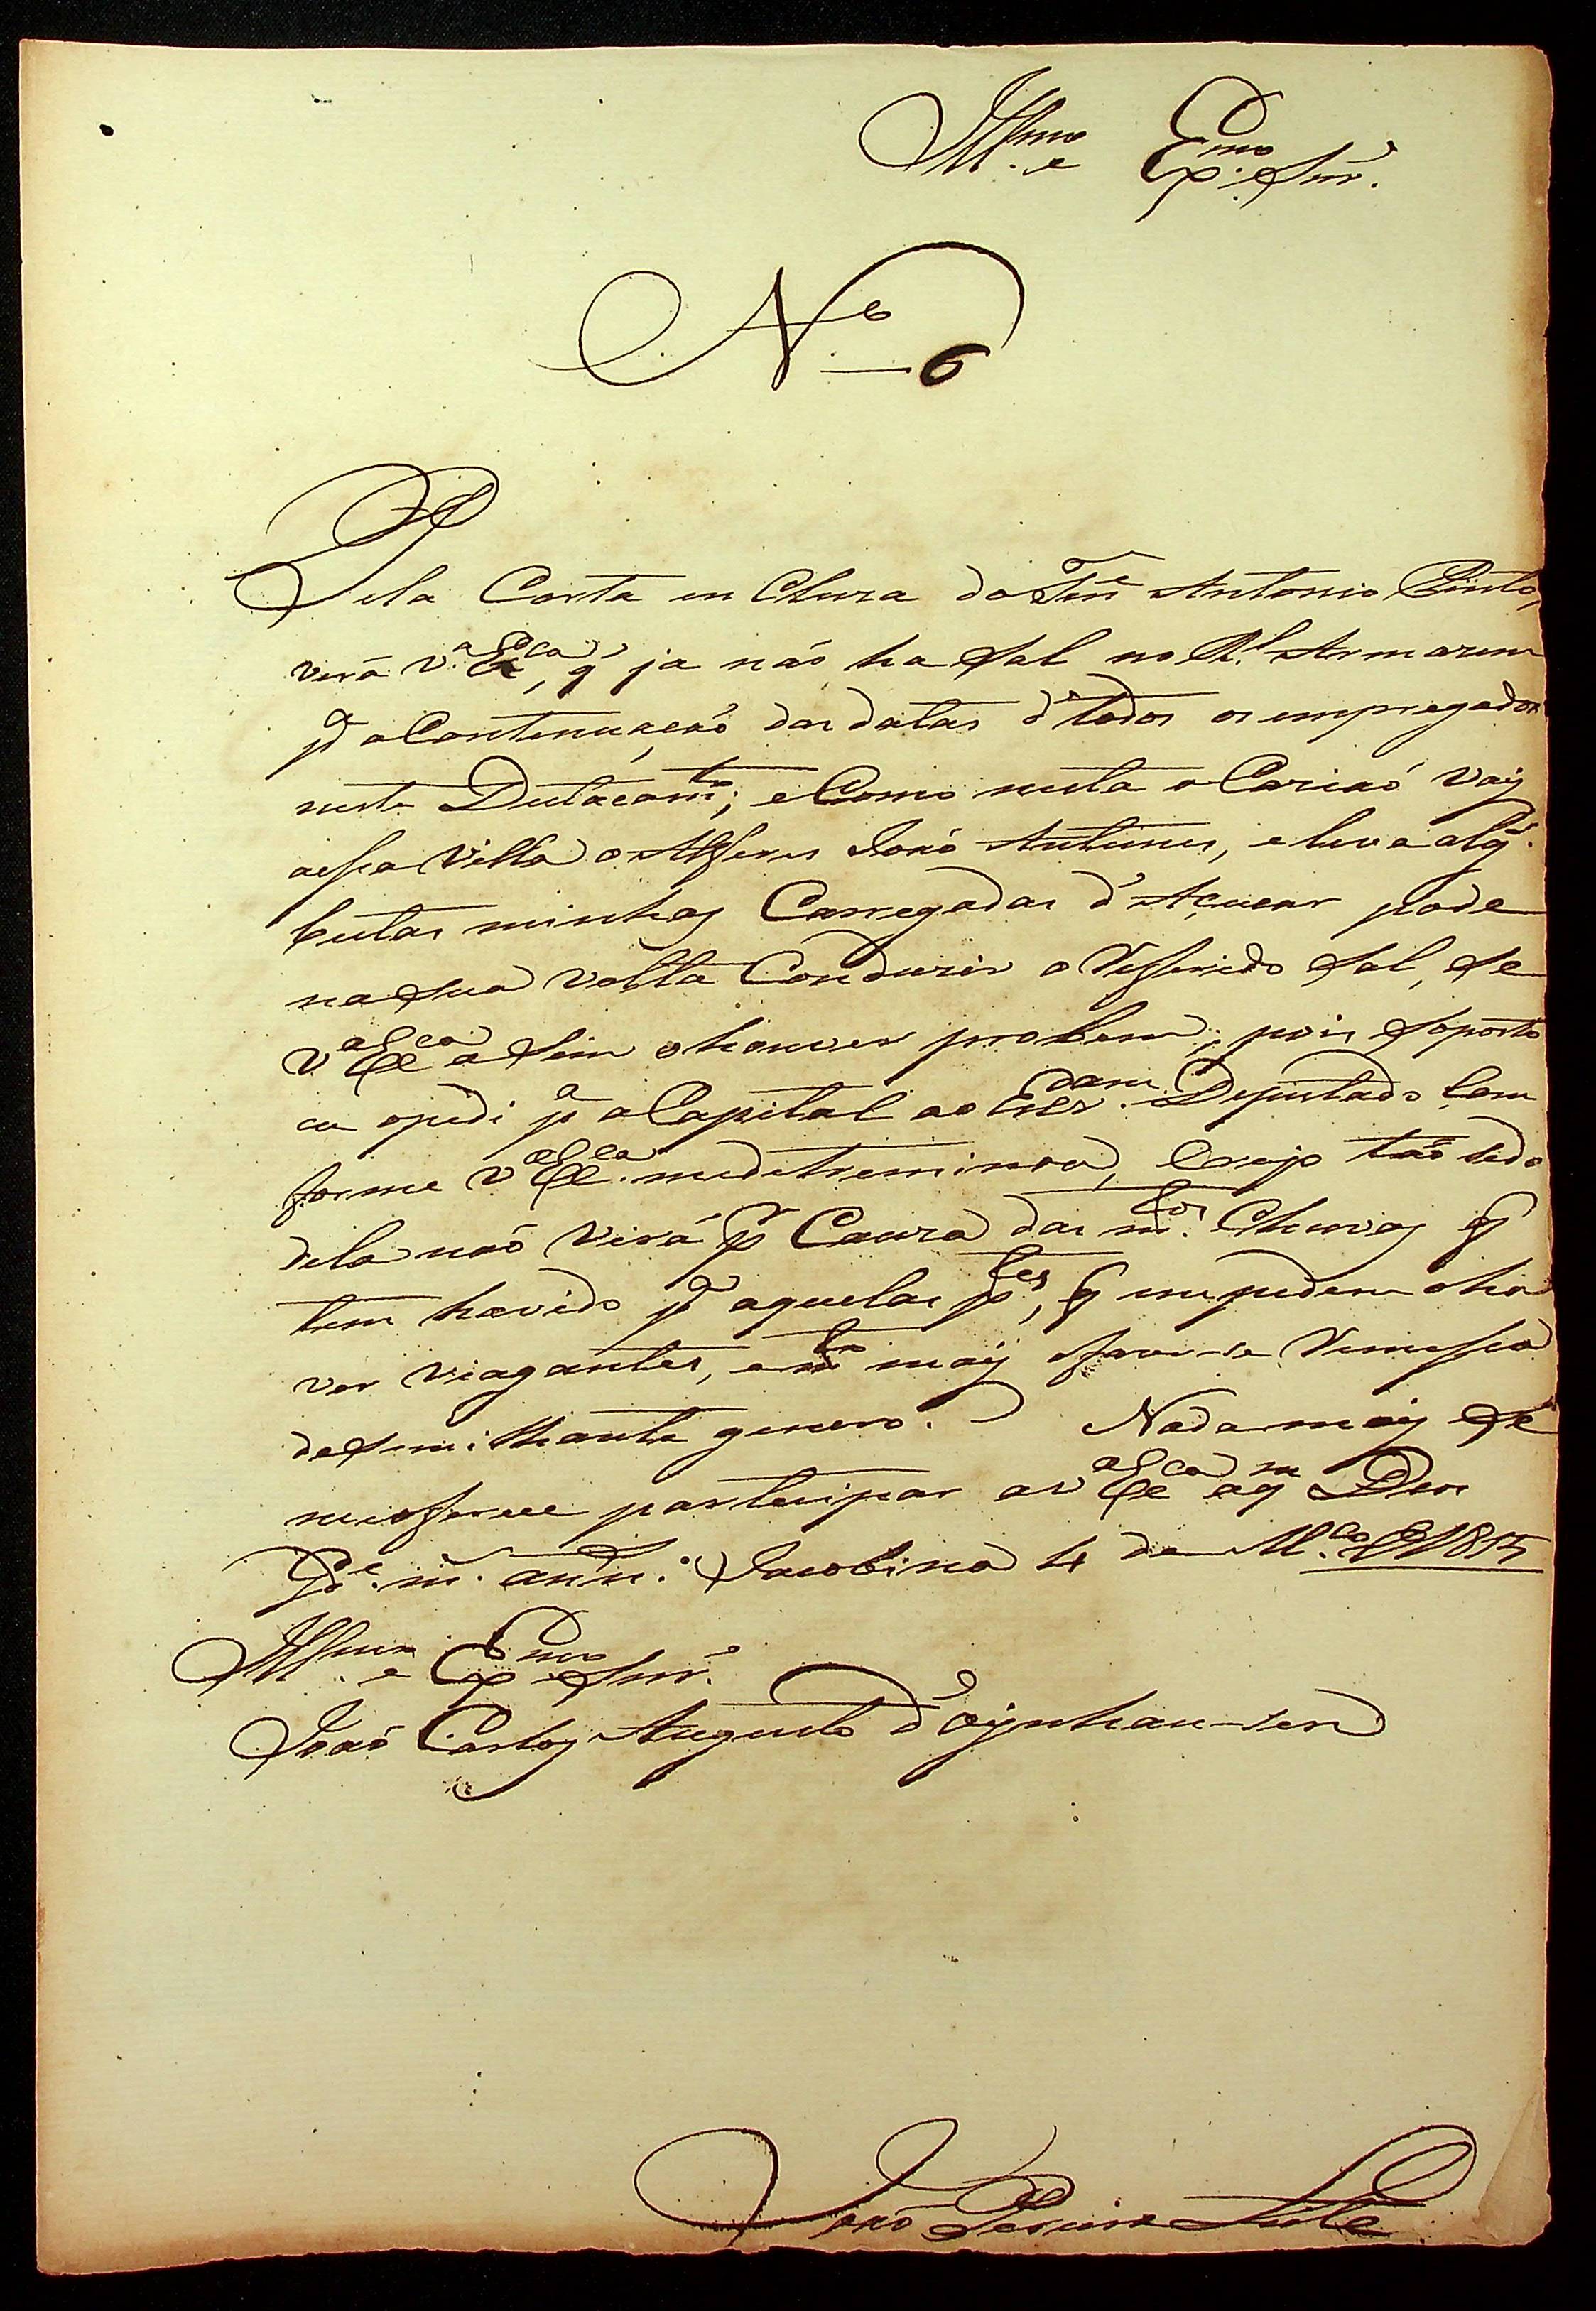 Ill.mo e Ex.mo Snr.
N.o 6
Pela Carta incluza do Ten.e Antonio Pinto,
verá V.a Ex.ca, q' ja não ha Sal no R.l Armazem
p.a a Continuação das datas d'todos os empregados
neste Destacam.to; e Como nesta o Cariaó Vay
aessa Villa o Alferes João Antunes, e leva alg.
bestas minhas Carregadas d'Açucar pode
na Sua volta Conduzir o Referido Sal, Se
V.a Ex.ca asim o houver pro bem; pois Soposto
eu o pedi p.a a Capital ao Escr.am Deputado Com
forme V.a Ex.ca me detreminou, Creyo tão sedo
dela não virá p.r Cauza das m.tas Chuvas q
tem havido p.a aquelas p.tes, q impedem o ha
ver viagantes, e m.to mais fazer-se Remessa
de Semilhante genero. Nada mais Se
me oferece partecipar a V.a Ex.ca a q.m Deos
G.de m. ann. Jacobina 4 de M.ço d 1815
Ill.mo e Ex.mo Snr.
João Carlos Augusto d'Oeynhausen
João Pereira Leite